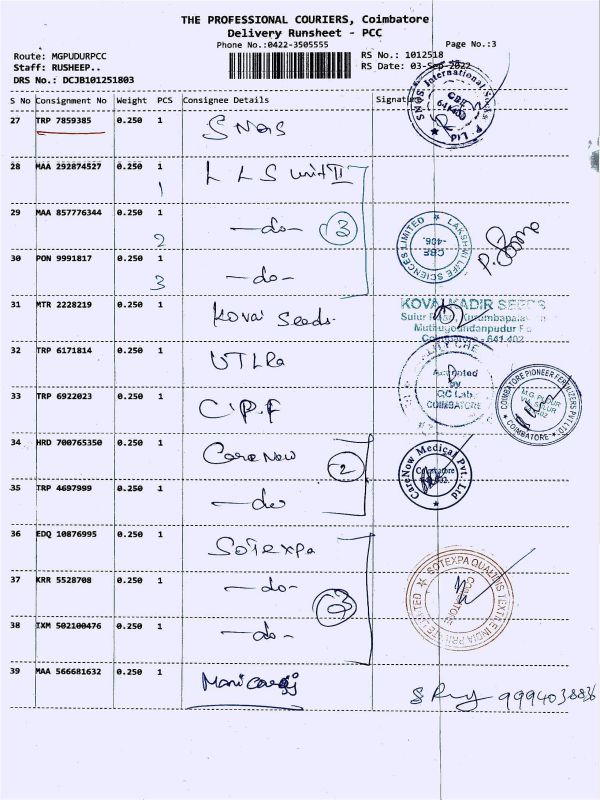 THE PROFESSIONAL COURIERS, Coimbatore
Delivery Runsheet - PCC
Phone No.:0422-3505555
Page No.:3
Route: MGPUDURPCC
RS No.: 1012518
Staff: RUSHEEP..
RS Date: 03-Sep-2022
DRS No.: DCJB101251803
S No Consignment No Weight PCS Consignee Details Signature
27 TRP 7859385 0.250 1 SNQS
SNQS International CBE 641402 P. Ltd
28 MAA 292874527 0.250 1 LLS unit II
1
29 MAA 857776344 0.250 1 —do— 3
2
LAKSHMI LIFE SCIENCES LIMITED CBE -406.
30 PON 9991817 0.250 1 —do—
3
31 MTR 2228219 0.250 1 Kovai Seeds.
KOVAI KADIR SEEDS
Sulur Road, Kurumbapalayam
Muthugoundanpudur
Coimbatore - 641 402
32 TRP 6171814 0.250 1 UTLRa
Accepted
by
QC Lab.
COIMBATORE
33 TRP 6922023 0.250 1 C.P.F
COIMBATORE PIONEER FERTILIZERS PVT LTD M.G. PUDUR COIMBATORE
34 HRD 700765350 0.250 1 CareNow 2
CareNow Medical Pvt. Ltd Coimbatore
35 TRP 4697999 0.250 1 —do
36 EDQ 10876995 0.250 1 SOTEXPA
37 KRR 5528708 0.250 1 —do— 3
SOTEXPA QUALIDIS TEXTILE INDIA PRIVATE LIMITED COIMBATORE
38 IXM 502100476 0.250 1 —do—
39 MAA 566681632 0.250 1
9994038836